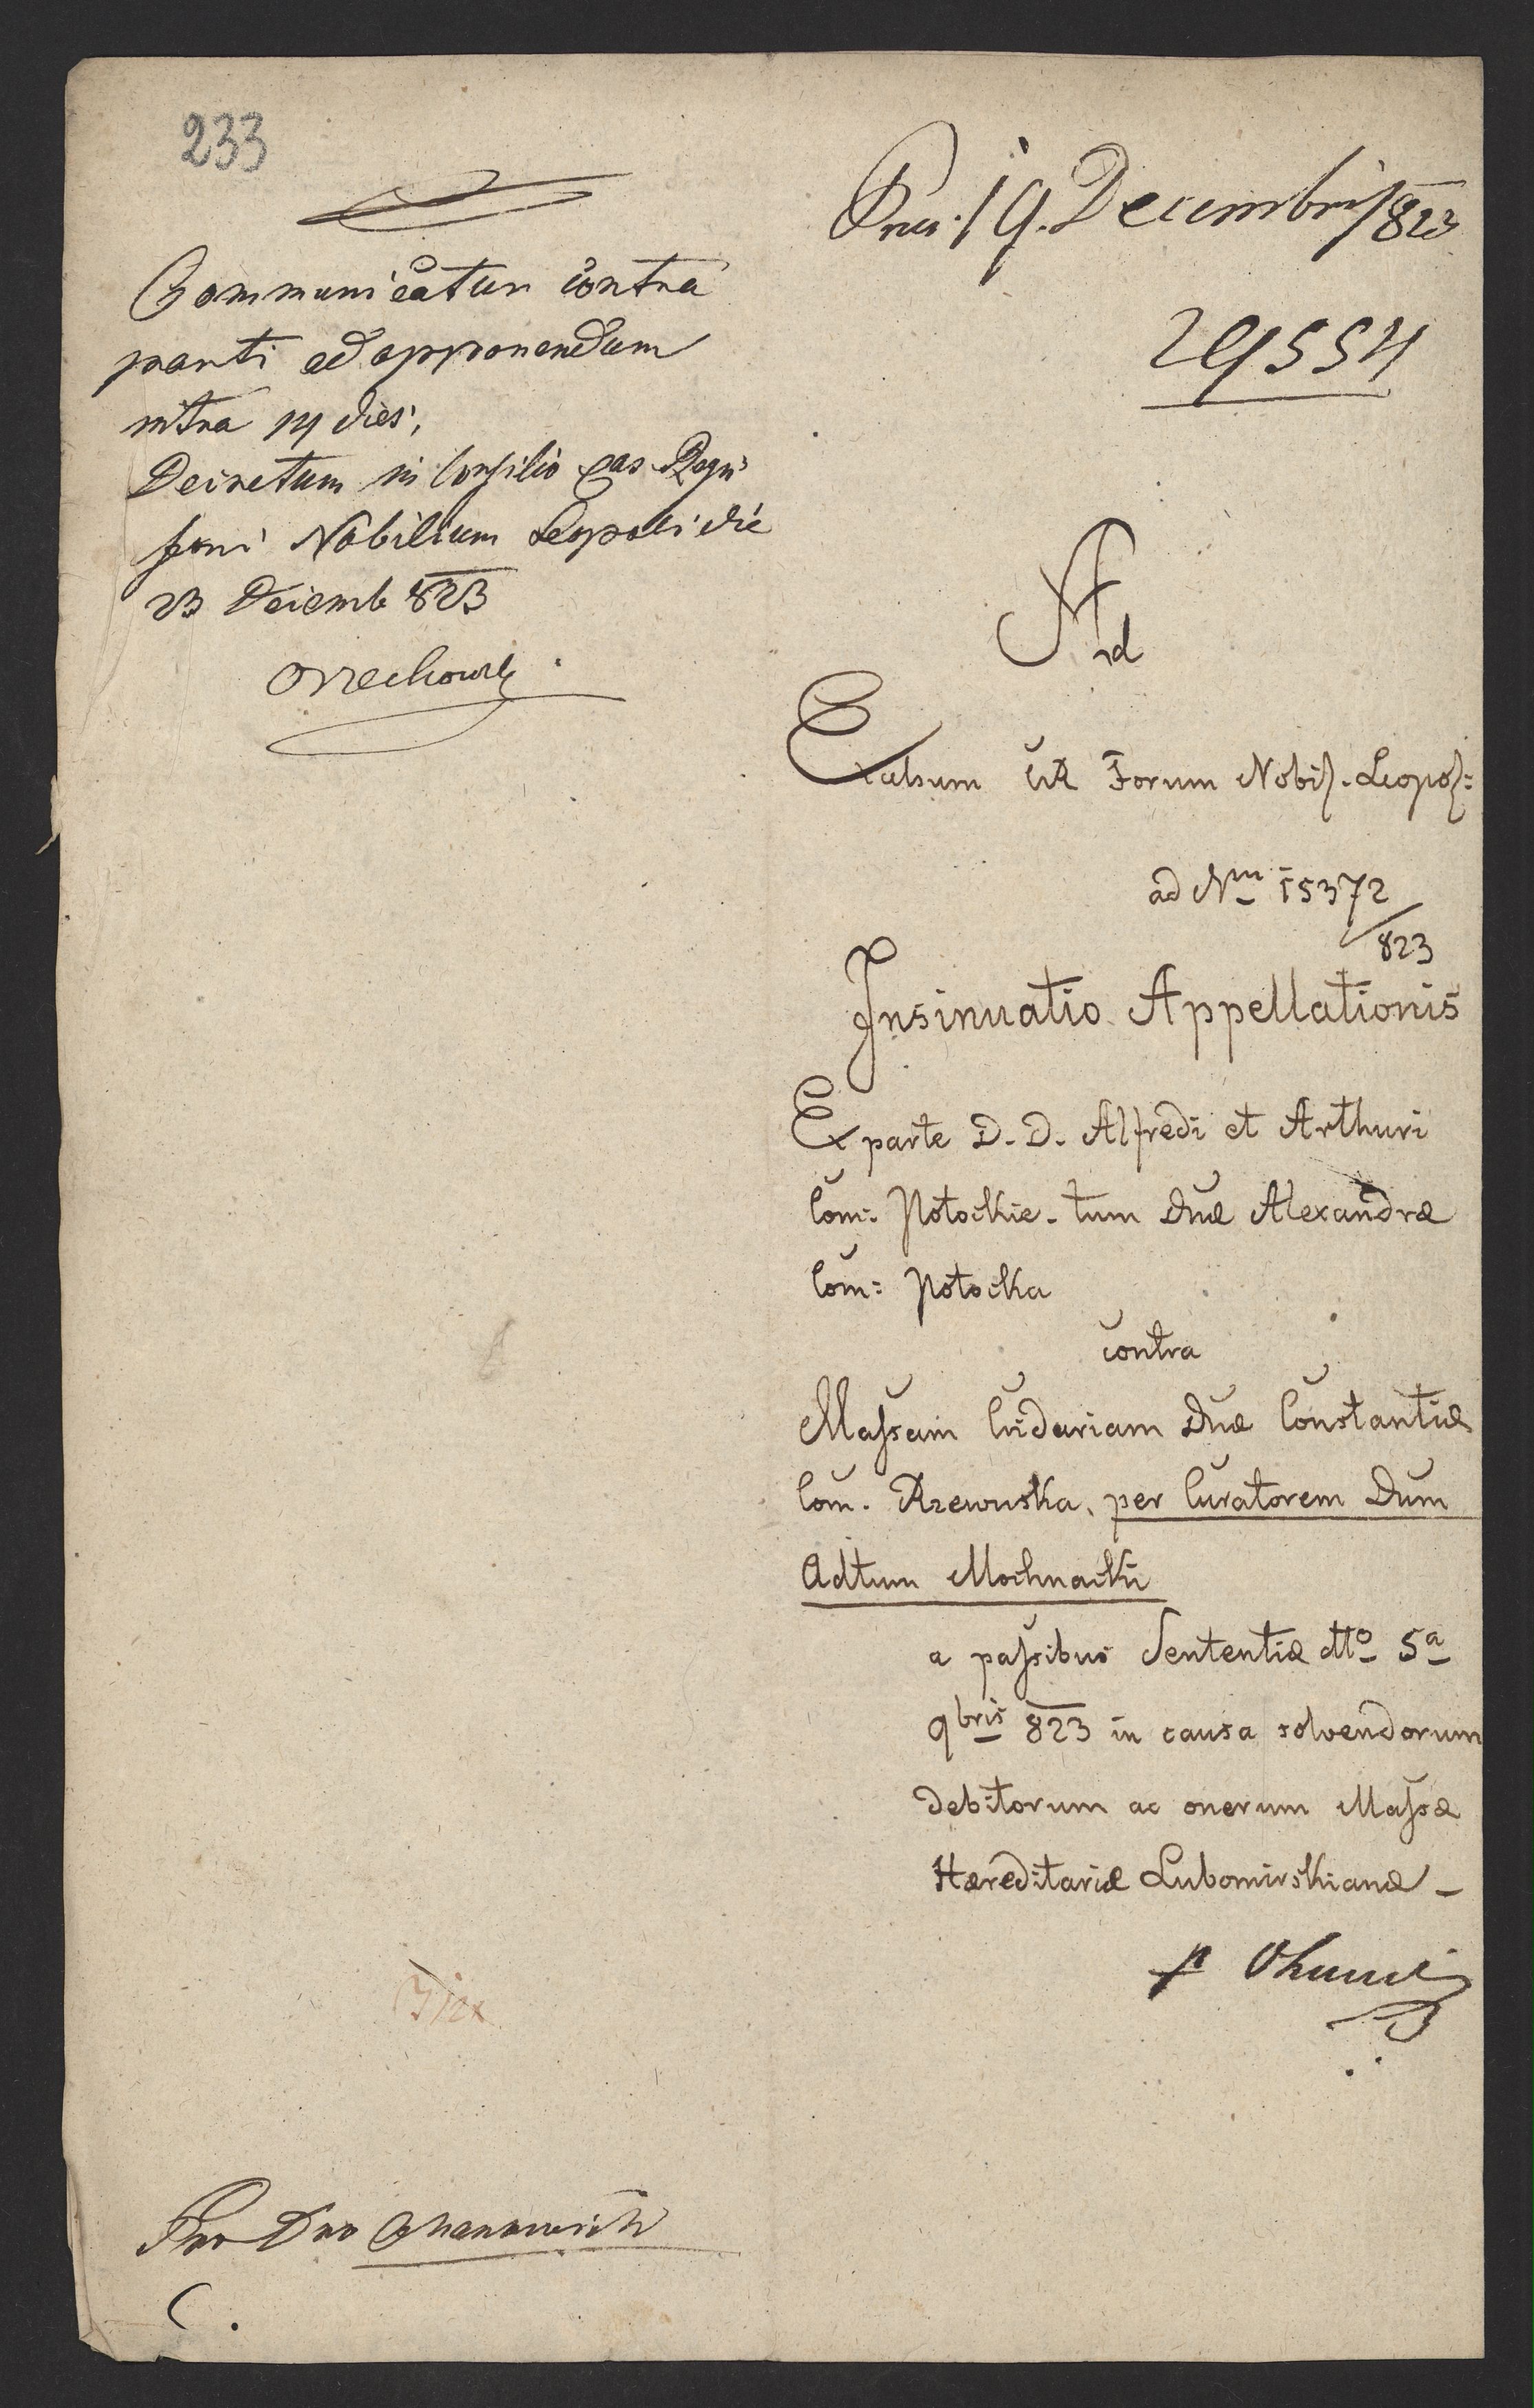 233
Communicatur contra
parti ad opponendum
intra 14 dies,
Decretum in Consilio Cas Regii
fori Nobilium Leopoli die
23 Decemb 823
Orzechowski
Pro Dno
C.
Prae: 19. Decembris 823
29554
Ad
Excelsum CR Forum Nobil. Leopol:
ad Nm 15372
/823
Insinuatio Appellationis
Ex parte D. D. Alfredi et Arthuri
Com: Potockie. tum Dnæ Alexandræ
Com: Potocka
contra
Massam Cridariam Dnæ Constantiæ
Com. Rzewuska, per Curatorem Dum
Adtum Mochnacki
a passibus Sententiæ dtto 5a
9bris 823 in causa solvendorum
debitorum ac onerum Massæ
Hæreditariæ Lubomirskianæ –